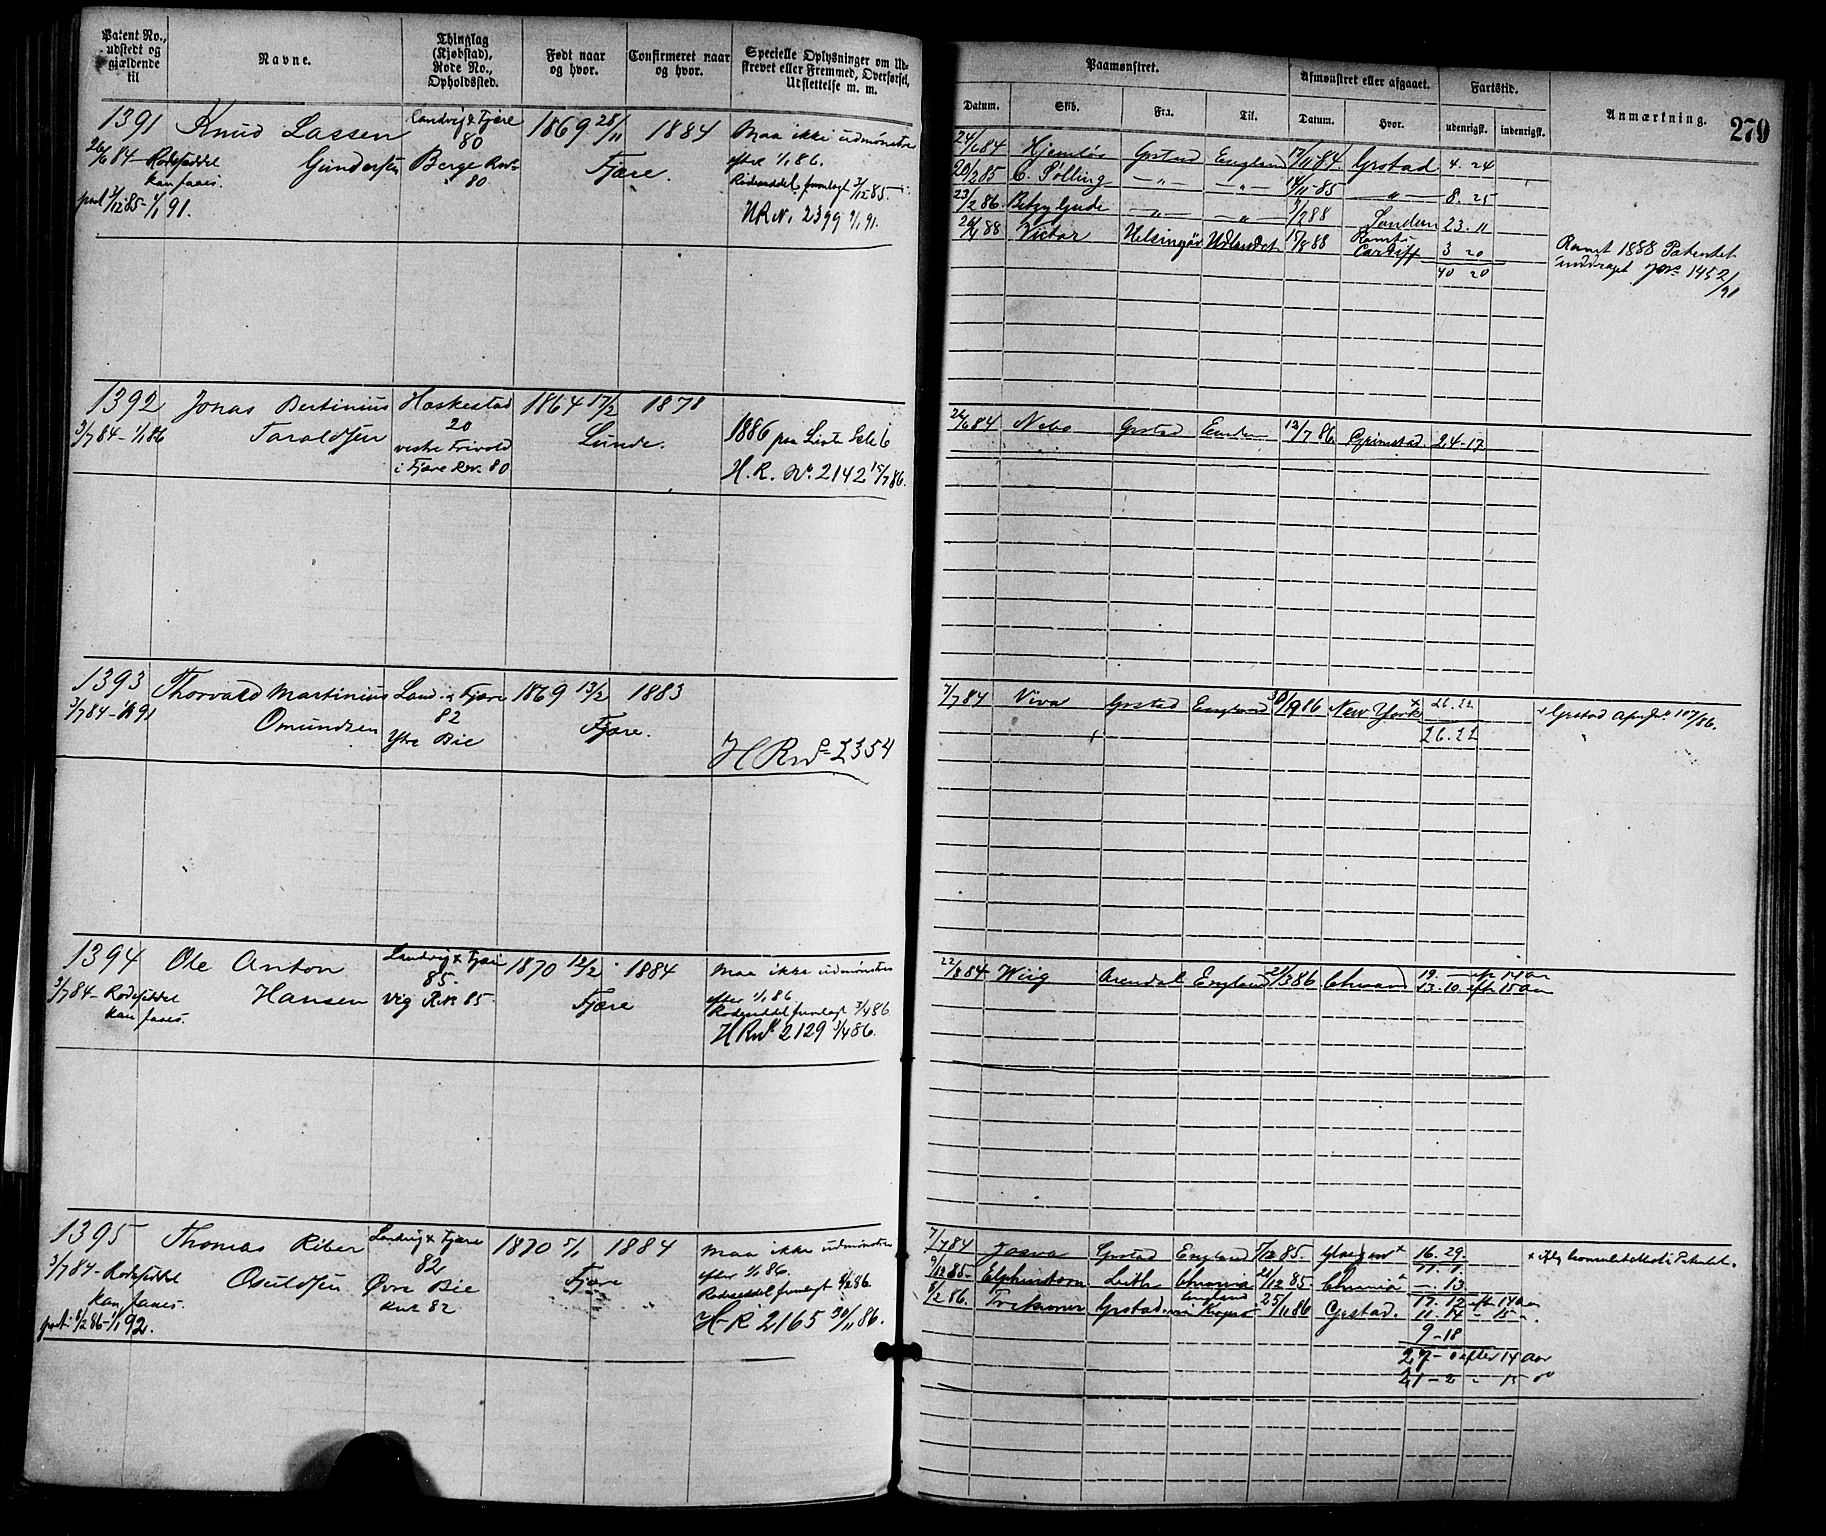 Patent No., udstedt og gjældende til
Navne.
Thinglag (Kjøbstad), Rode No., Opholdssted.
Født naar og hvor.
Confirmeret naar og hvor.
Specielle Oplysninger om Udskrevet eller Fremmed, Overførsel, Udslettelse m. m.
Paamønstret.
Afmønstret eller afgaaet.
Fartstid.
Anmærkning.
270
Datum.
Skib.
Fra.
Til.
Datum.
Hvor.
udenrigsk.
indenrigsk.
1391 Knud Lassen Landvig & Fjære 1869 28/11 1884 Maa ikke udmønstres
26/6 84 – Rodeseddel Gundersen 80 Fjære. efter 1/1 86.
kan faaes. Berge Rode 80 Rodeseddel fremlagt 3/12 85
prol 3/12 85 – 1/1 91. H R No 2399 9/1 91.
24/6 84 Hjemløs Grstad England 17/11 84 Grstad 4. 24
20/2 85 C. Pølling – " – – " – 14/11 85 – " – 8. 25
23/2 86 Betzy Gude – " – – " 3/2 88 London 23. 11
26/4 88 Victor Helsingør Udlandet 15/8 88 Rømt Cardiff 3 20
40 20
Rømt 1888 Patentet
inddraget 1452/90
1392 Jonas Bertinius Haskestad 1864 17/2 1878
3/7 84 – 1/1 86 Taraldsen 20 Lunde. 1886 paa Liste
vestre Frivold
i Fjære Rode 80 H. R. No. 2142 15/7 86.
26/6 84 Nebo Grstad 12/7 86 Grimstad. 24 – 17
1393 Thorvald Martinius Land. & Fjære 1869 13/2 1883
3/7 84 – 1/1 91 Omundsen 82 Fjære.
Ytre Bie H R No 2354
7/7 84 Viva Grstad England 30/9 86 New York x 26. 22
26. 22
x Grstad 107/86.
1394 Ole Anton Landvig & Fjære 1870 12/2 1884 Maa ikke udmønstres
3/7 84 – Rodeseddel Hansen 85. Fjære efter 1/1 86.
kan faaes. Vig R.N. 85. Rodeseddel fremlagt 3/4 86
H R No 2129 3/4 86.
22/8 84 Wiig Arendal England 21/3 86 Chrsand 19. — eft 14 Aar
13. 10. efter 15 Aar
1395 Thomas Riber Landvig & Fjære 1870 5/1 1884 Maa ikke udmønstres
3/7 84 – Rodeseddel Osuldsen 82 Fjære efter 1/1 86.
kan faaes. Øvre Bie Rodeseddel fremlagt 6/2 86
prol: 6/2 86 – 1/1 92. Rode 82 H R 2165 30/11 86.
7/7 84 Grstad England 7/12 85. Glasgow x 16. 29.
11. 1.
9/12 85 – Elphinstone Leith 21/12 85 – . 13
8/2 86. Grstad England 25/11 86 Grstad. 17. 12 eft 14 Aar
11. 14 " 15 ".
9 – 18
27 – 0 efter 14 Aar
21 – 2 " 15 "